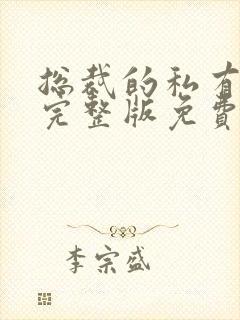 总裁的私有
完整版免费
李宗盛